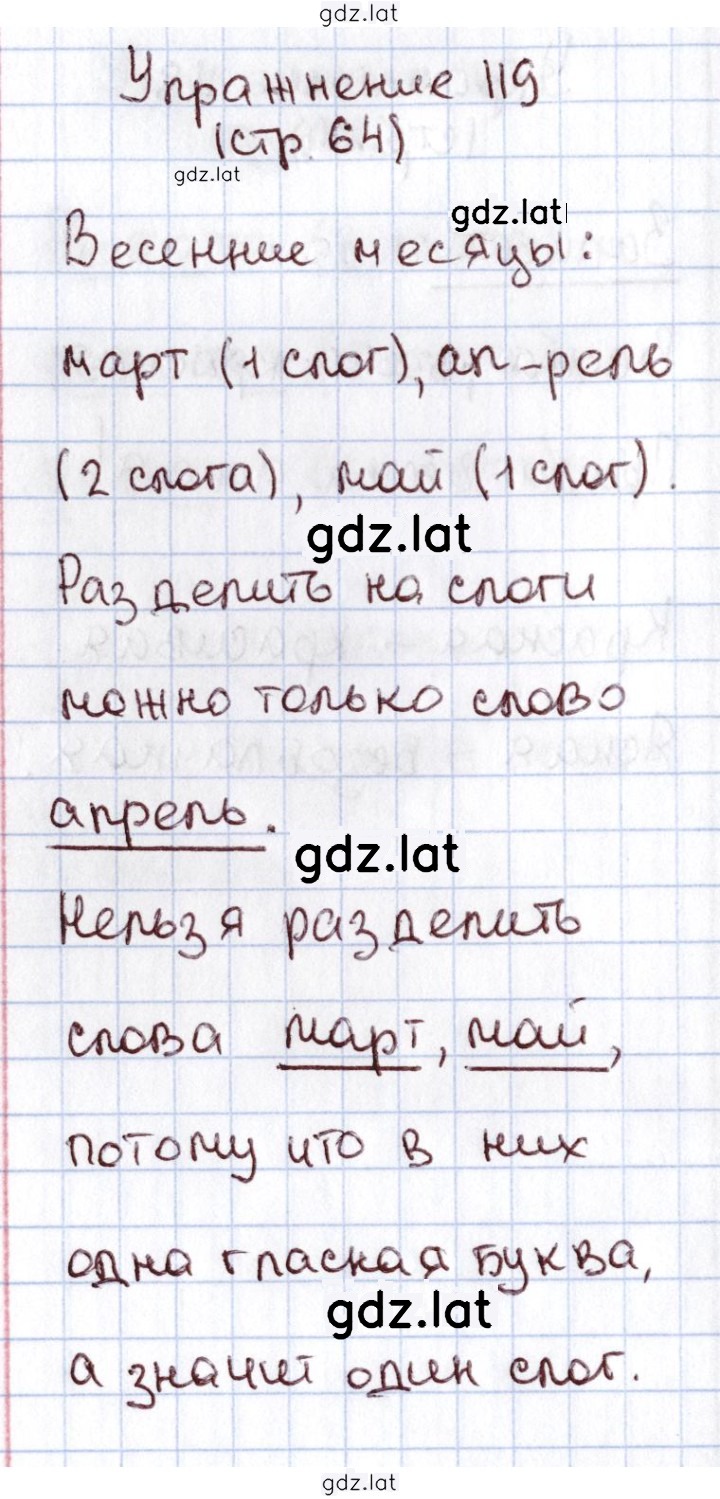 gdz.lat
Упражнение 119
(стр. 64)
gdz.lat
gdz.lat
Весенние месяцы:
март (1 слог), ап-рель
(2 слога), май (1 слог).
gdz.lat
Разделить на слоги
можно только слово
апрель.
gdz.lat
Нельзя разделить
слова март, май,
потому что в них
одна гласная буква,
gdz.lat
а значит один слог.
gdz.lat